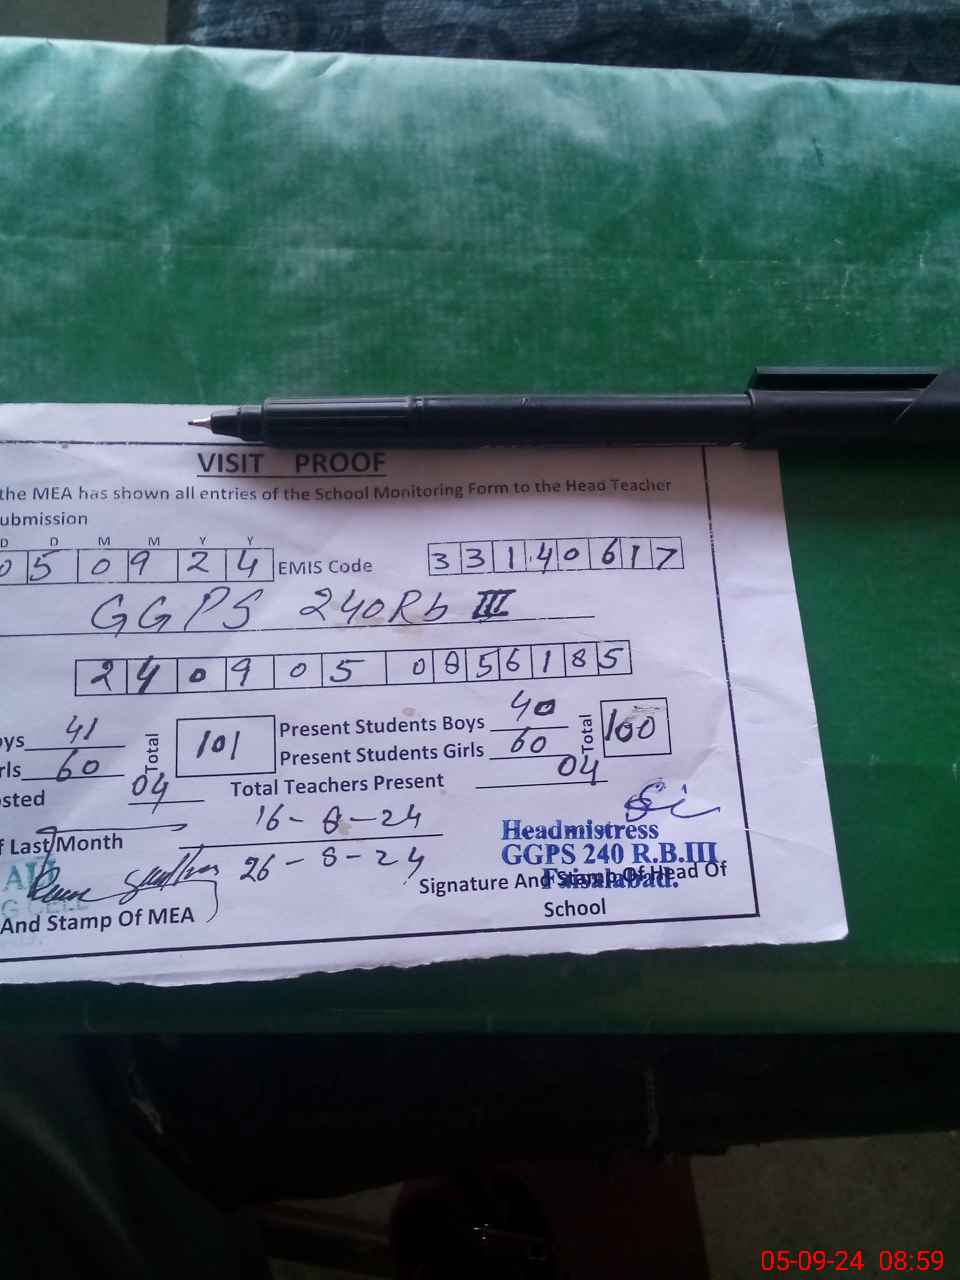 VISIT PROOF
the MEA has shown all entries of the School Monitoring Form to the Head Teacher
ubmission
D D M M Y Y
05 09 24 EMIS Code 33140617
GGPS 240Rb III
240905 0856185
ys 41 Total 101 Present Students Boys 40 Total 100
rls 60 Present Students Girls 60
osted 04 Total Teachers Present 04
f Last Month 16-8-24
26-8-24
Headmistress
GGPS 240 R.B.III
Faisalabad.
Signature And Stamp Of Head Of
School
And Stamp Of MEA
05-09-24 08:59